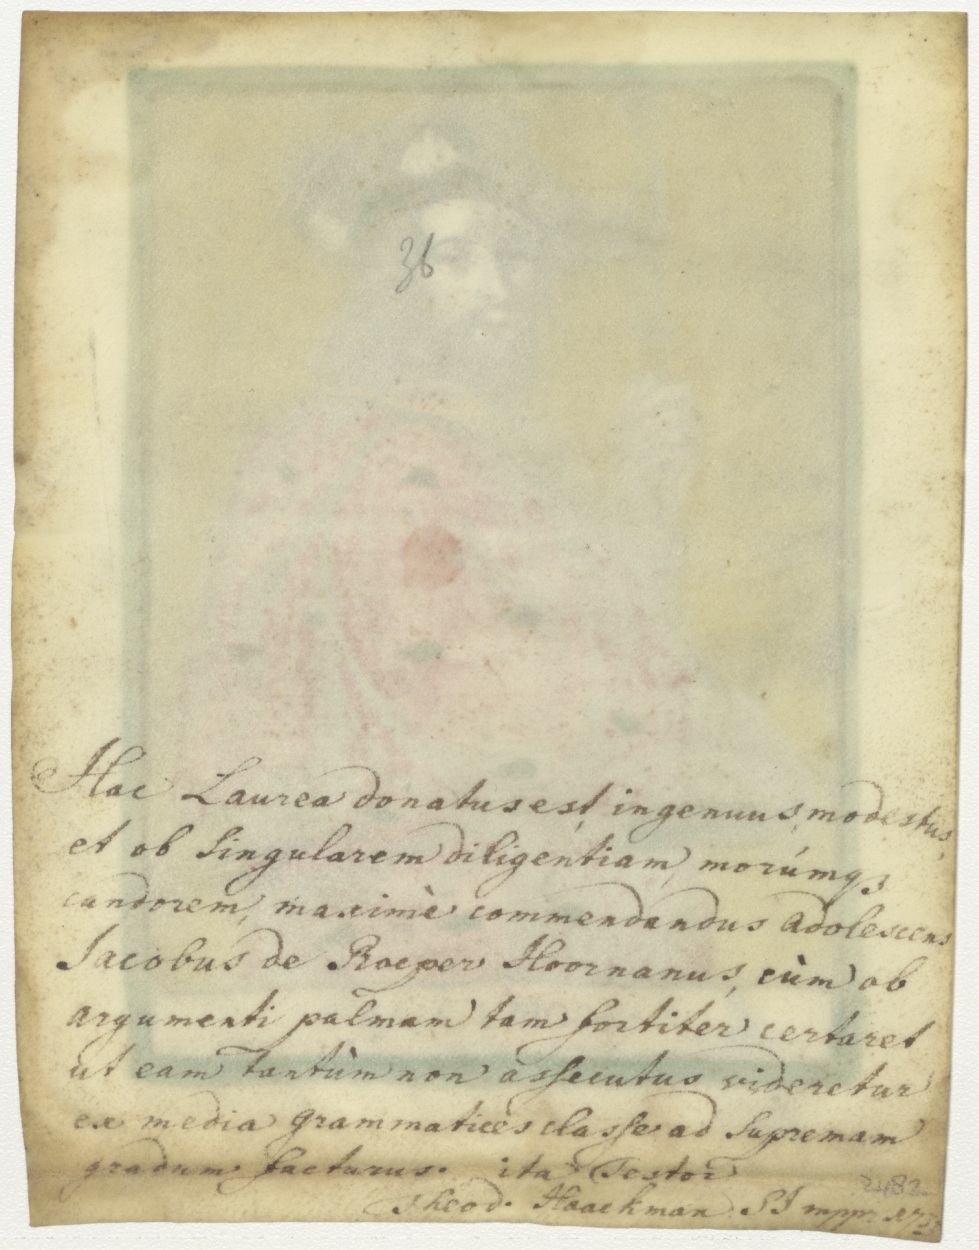 36
Hac Laurea donatus est ingenuus, modestus,
et ob singularem diligentiam, morúmq3
candorem, maximè commendandus adolescens
Jacobus de Roeper Hoornanus, cùm ob
argumenti palmam tam fortiter certaret
ut eam tantùm non àssecutus videretur
ex media grammatices classe ad supremam
gradum facturus. ita Testor
Theod. Haackman SJ mppr.
2482